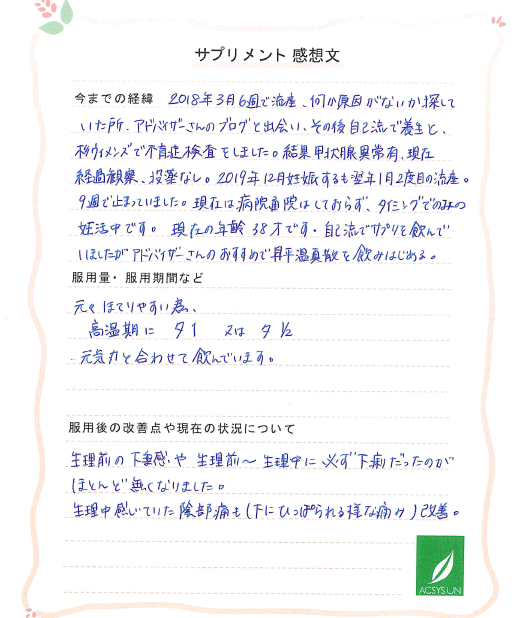 サプリメント 感想文
今までの経緯 2018年3月6週で流産、何か原因がないか探して
いた所、アドバイザーさんのブログと出会い、その後自己流で養生と、
杉ウィメンズで不育症検査をしました。結果甲状腺異常有、現在
経過観察、投薬なし。2019年12月妊娠するも翌年1月2度目の流産。
9週で止まっていました。現在は病院通院はしておらず、タイミングでのみの
妊活中です。現在の年齢38才です・自己流でサプリを飲んで
いましたがアドバイザーさんのおすすめで昇平温真散を飲みはじめる。
服用量・服用期間など
元々ほてりやすい為、
高温期に 夕1 又は 夕½
元気力と合わせて飲んでいます。
服用後の改善点や現在の状況について
生理前の下垂感や生理前〜生理中に必ず下痢だったのが
ほとんど無くなりました。
生理中感じていた陰部痛も(下にひっぱられる様な痛み)改善。
ACSYSUN